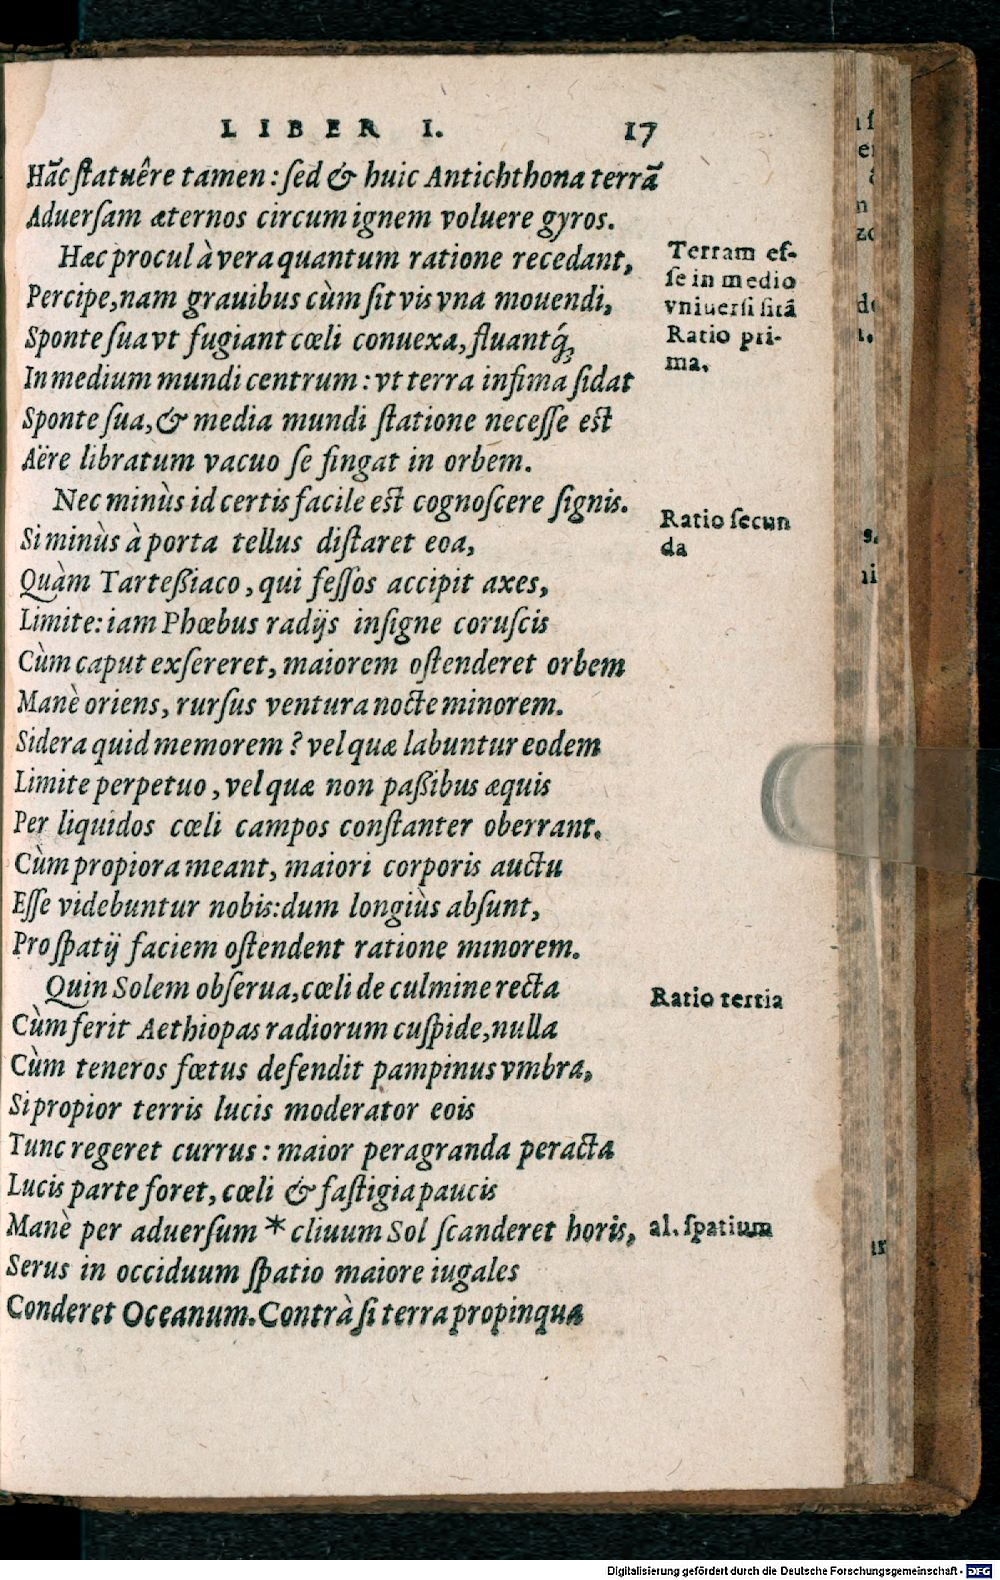 LIBER I. 17
Hãc ſtatuêre tamen: ſed & huic Antichthona terrã
Aduerſam æternos circum ignem voluere gyros.
Hæc procul à vera quantum ratione recedant,
Percipe, nam grauibus cùm ſit vis vna mouendi,
Sponte ſua vt fugiant cœli conuexa, fluantq́;
In medium mundi centrum: vt terra infima ſidat
Sponte ſua, & media mundi ſtatione neceſſe eſt
Aëre libratum vacuo ſe fingat in orbem.
Terram eſ-
ſe in medio
vniuerſi ſitã
Ratio pri-
ma.
Nec minùs id certis facile eſt cognoſcere ſignis.
Si minùs à porta tellus diſtaret eoa,
Quàm Tarteßiaco, qui feſſos accipit axes,
Limite: iam Phœbus radijs inſigne coruſcis
Cùm caput exſereret, maiorem oſtenderet orbem
Manè oriens, rurſus ventura nocte minorem.
Sidera quid memorem? vel quæ labuntur eodem
Limite perpetuo, vel quæ non paßibus æquis
Per liquidos cœli campos conſtanter oberrant.
Cùm propiora meant, maiori corporis auctu
Eſſe videbuntur nobis: dum longiùs abſunt,
Pro ſpatij faciem oſtendent ratione minorem.
Ratio ſecun
da
Quin Solem obſerua, cœli de culmine recta
Cùm ferit Aethiopas radiorum cuſpide, nulla
Cùm teneros fœtus defendit pampinus vmbra,
Si propior terris lucis moderator eois
Tunc regeret currus: maior peragranda peracta
Lucis parte foret, cœli & faſtigia paucis
Manè per aduerſum * cliuum Sol ſcanderet horis,
Serus in occiduum ſpatio maiore iugales
Conderet Oceanum. Contrà ſi terra propinqua
Ratio tertia
al. ſpatium
Digitalisierung gefördert durch die Deutsche Forschungsgemeinschaft - DFG